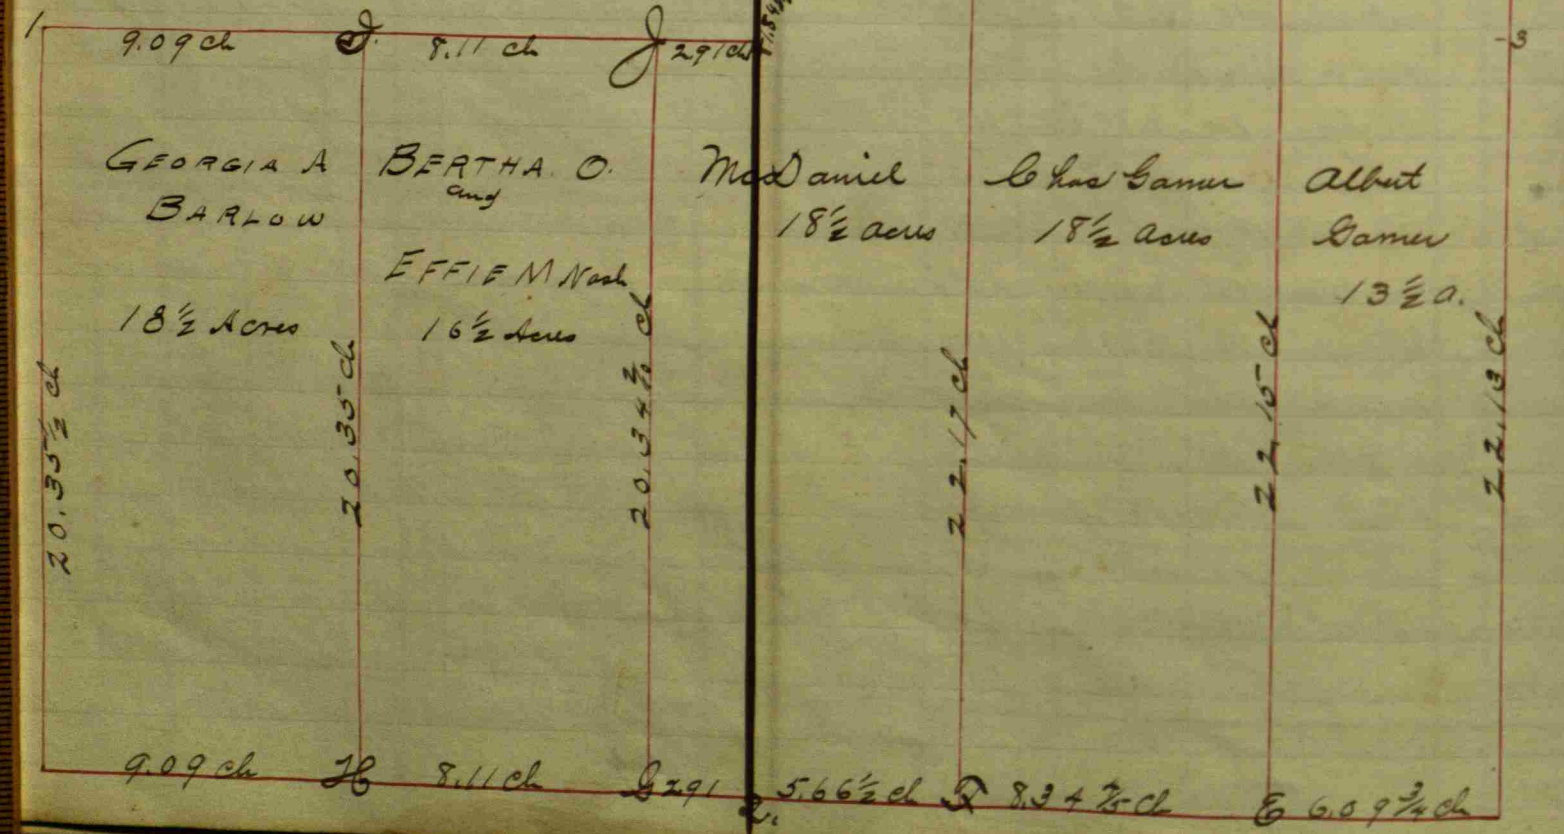 1 9.09 ch I. 8.11 ch J 2.91 ch
3
GEORGIA A
BARLOW
18½ Acres
BERTHA. O.
and
EFFIE M Nash
16½ Acres
McDaniel
18½ acres
Chas Garner
18½ acres
Albert
Garner
13½ a.
20.35½ ch
20.35 ch
20.34 ch
22.17 ch
22.15 ch
22.13 ch
9.09 ch H 8.11 ch G 2.91 2. 5.66½ ch F 8.34 ch E 6.09¾ ch